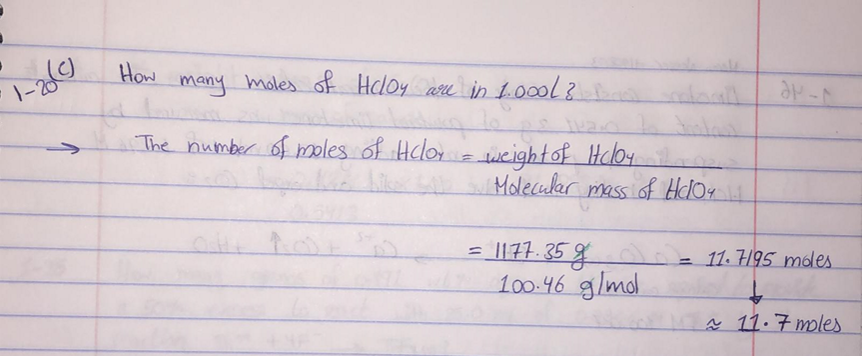 1-20 (c) How many moles of HClO4 are in 1.000L?
→ The number of moles of HClO4 = weight of HClO4 / Molecular mass of HClO4
= 1177.35 g / 100.46 g/mol = 11.7195 moles
↓
≈ 11.7 moles